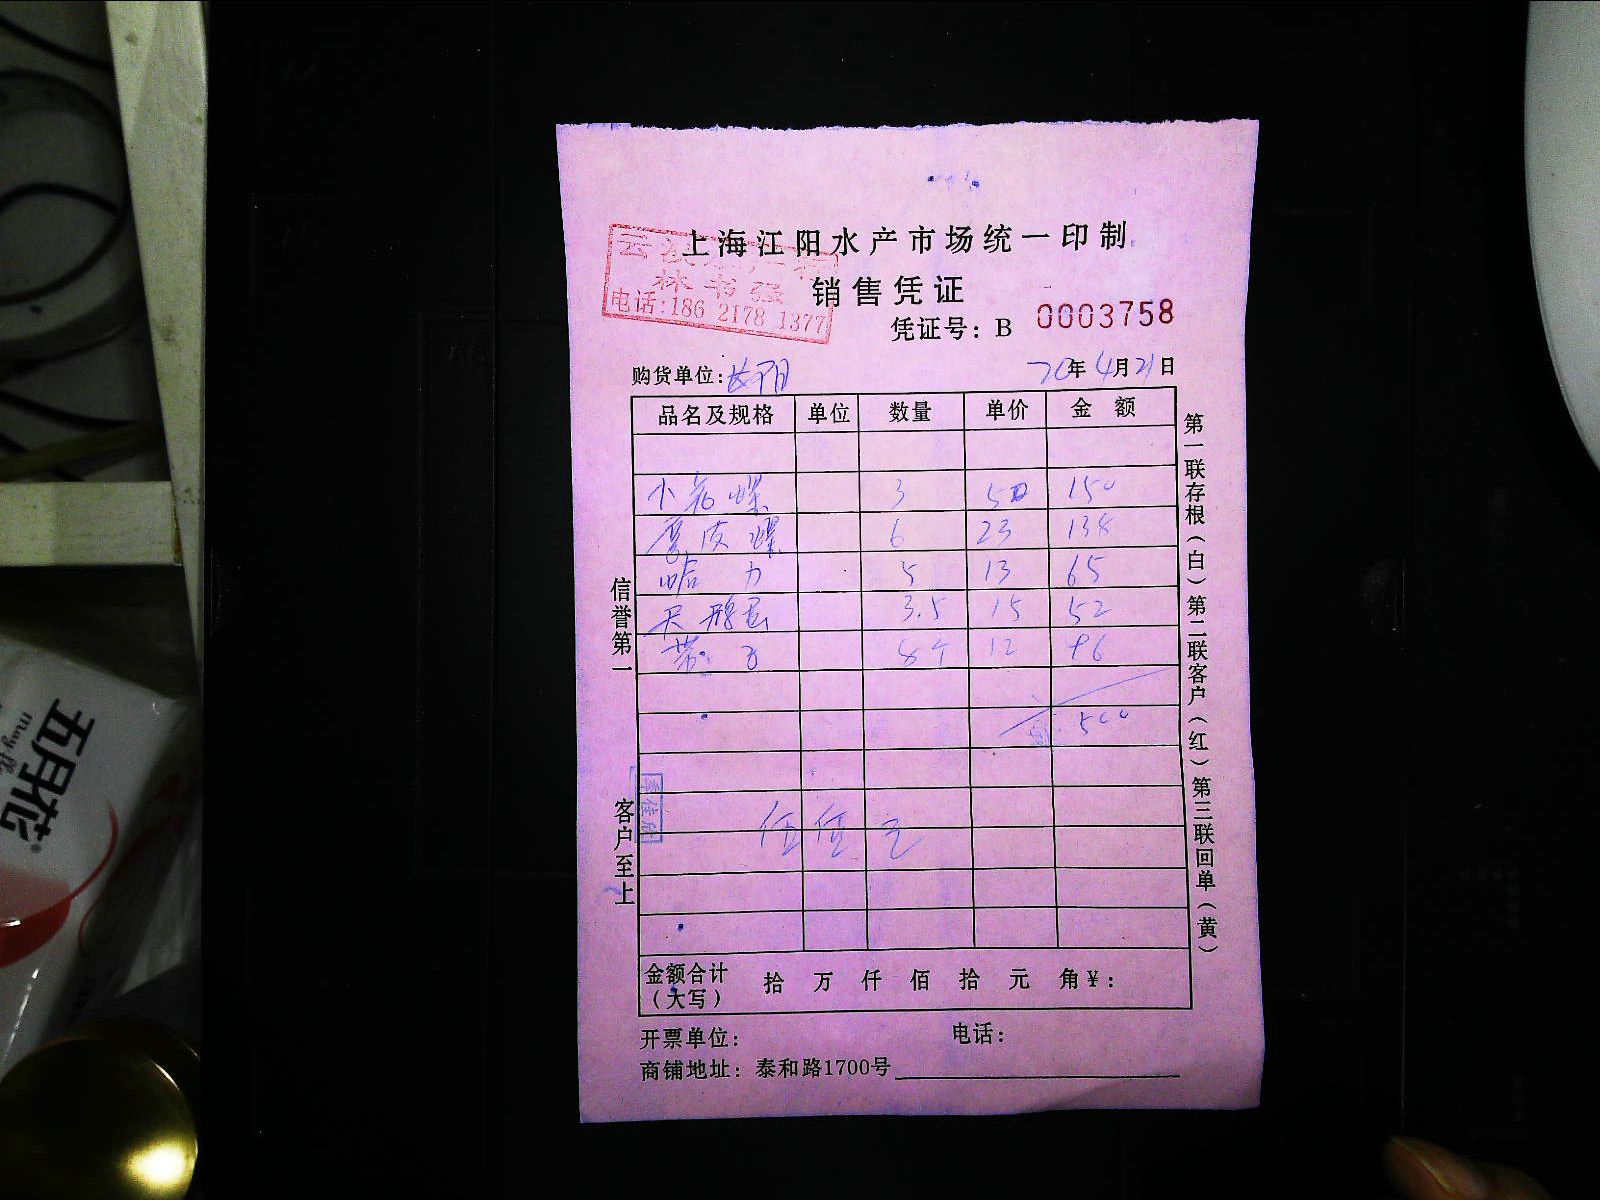 上海江阳水产市场统一印制
林书强
电话:186 2178 1377
销售凭证
凭证号: B 0003758
购货单位: 20年4月21日
品名及规格 单位 数量 单价 金额
小花螺 3 50 150
厚皮螺 6 23 138
哈力 5 13 65
3.5 15 52
带子 8个 12 96
500
伍佰元
金额合计(大写) 拾 万 仟 佰 拾 元 角¥:
开票单位: 电话:
商铺地址: 泰和路1700号
信誉第一
客户至上
第一联存根(白)第二联客户(红)第三联回单(黄)
五月花
May